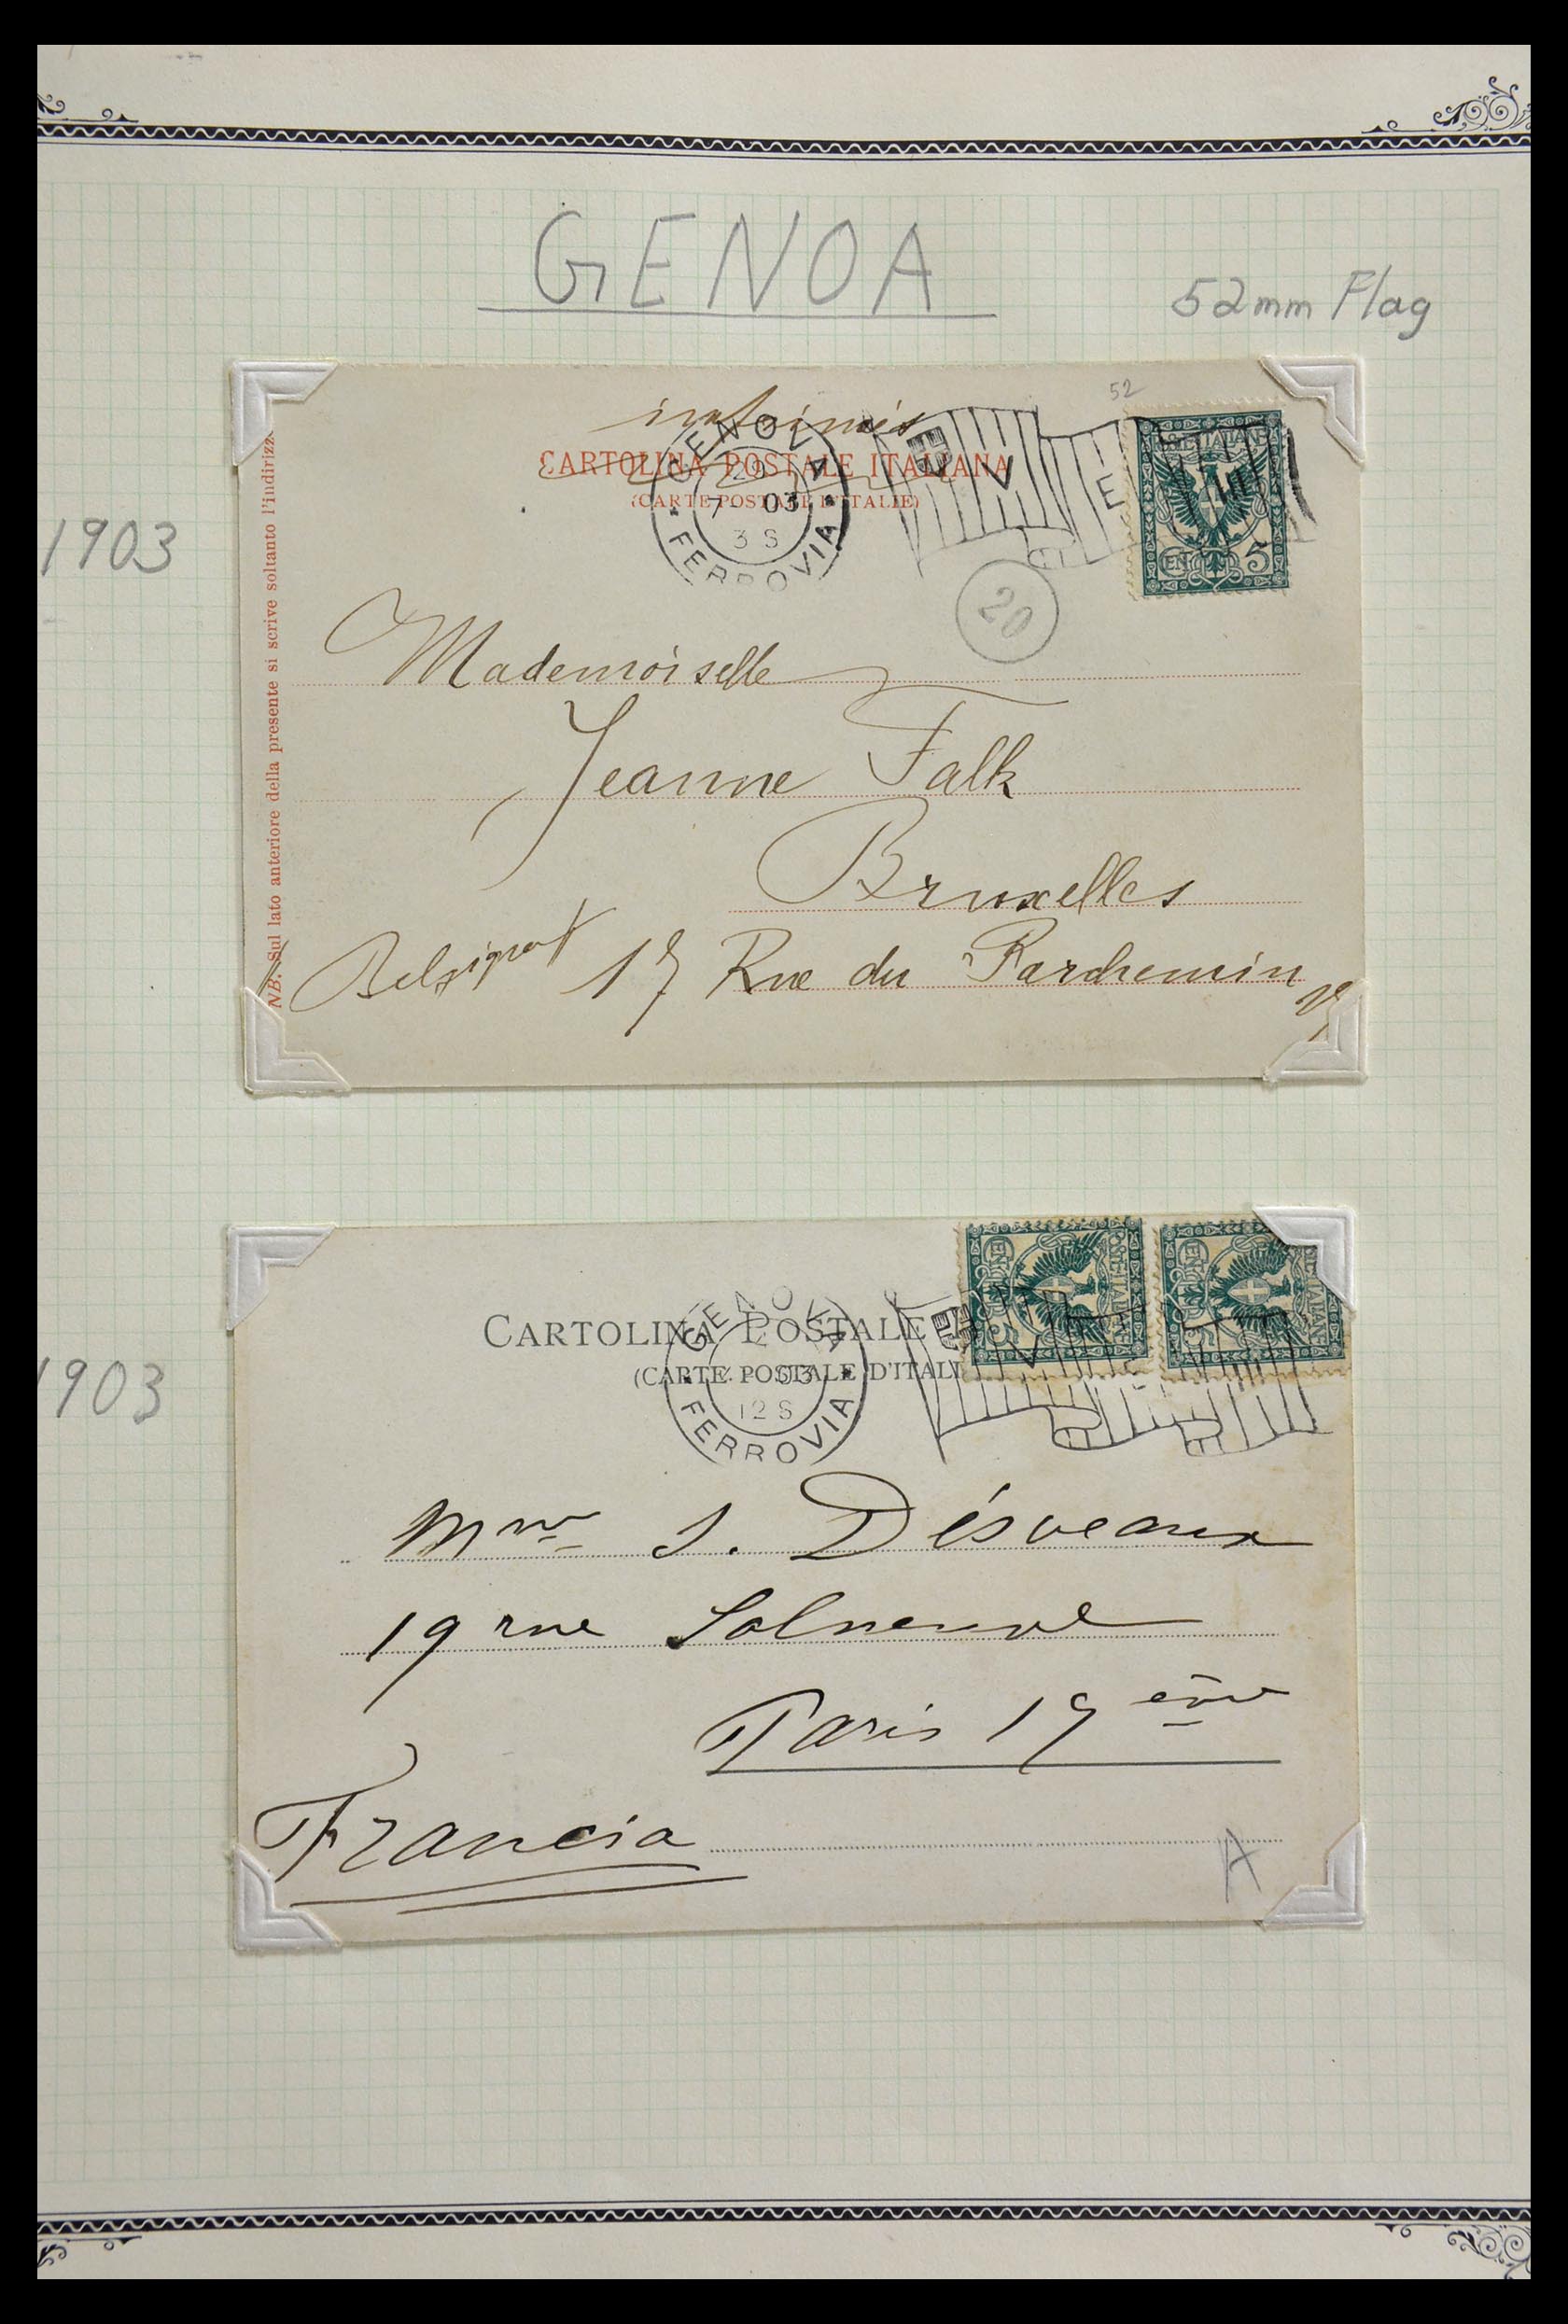 GENOA
52mm Flag
1903
52
imprimés
CARTOLINA POSTALE ITALIANA
(CARTE POSTALE D'ITALIE)
GENOVA
7- 03
3 S
FERROVIA
V E
POSTE ITALIANE
CEN 5
20
NB. Sul lato anteriore della presente si scrive soltanto l'indirizz
Mademoiselle
Jeanne Falk
Bruxelles
17 Rue du Parchemin
1903
CARTOLINA POSTALE
(CARTE POSTALE D'ITALI
GENOVA
03
12 S
FERROVIA
V
POSTE ITALIANE
CEN 5
CEN 5
Mme S. Désveaux
19 rue
Paris 19 ème
Francia
A